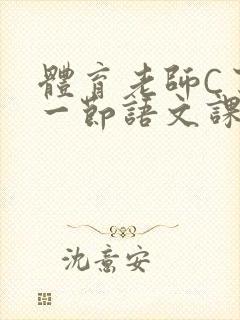 體育老師C
一節語文課
沈意安